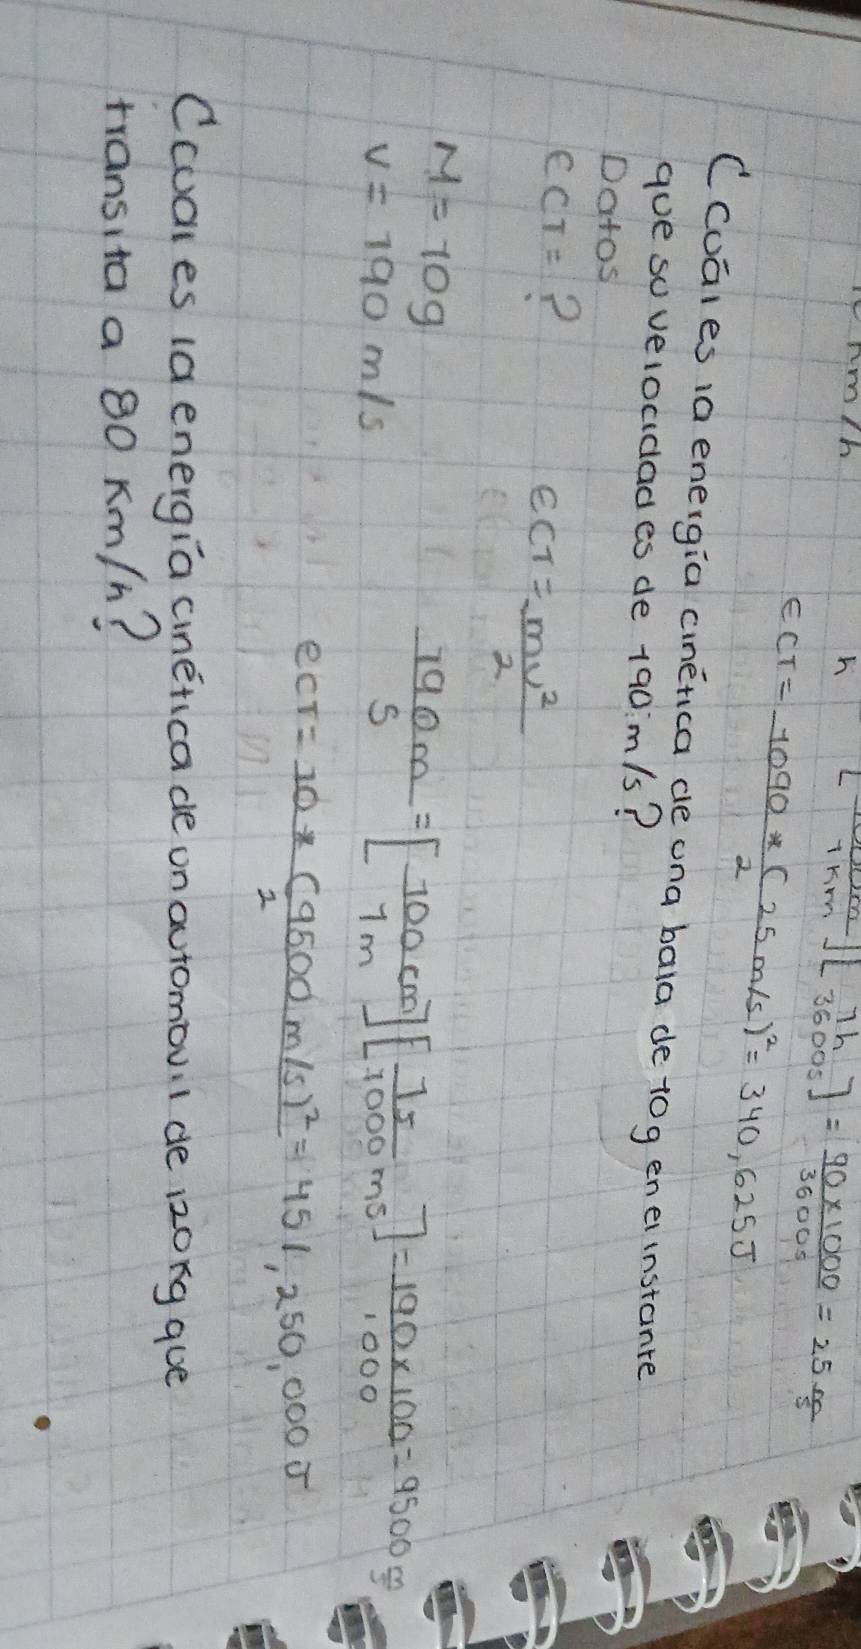 km/h h [1000m/1km] [1h/3600s] = 90x1000/3600s = 25 m/s
ECT = 1090 * (25 m/s)²/2 = 340,625J
¿Cuál es la energía cinética de una bala de 10g en el instante
que su velocidad es de 190 m/s?
Datos
ECT = ? ECT = mv²/2
M = 10g
V = 190 m/s 190m/s = [100cm/1m] [1s/1000ms] = 190x100/1000 = 9500 m/s
ECT = 10 * (9500 m/s)²/2 = 451,250,000J
¿Cual es la energía cinética de un automóvil de 120Kg que
transita a 80 Km/h?